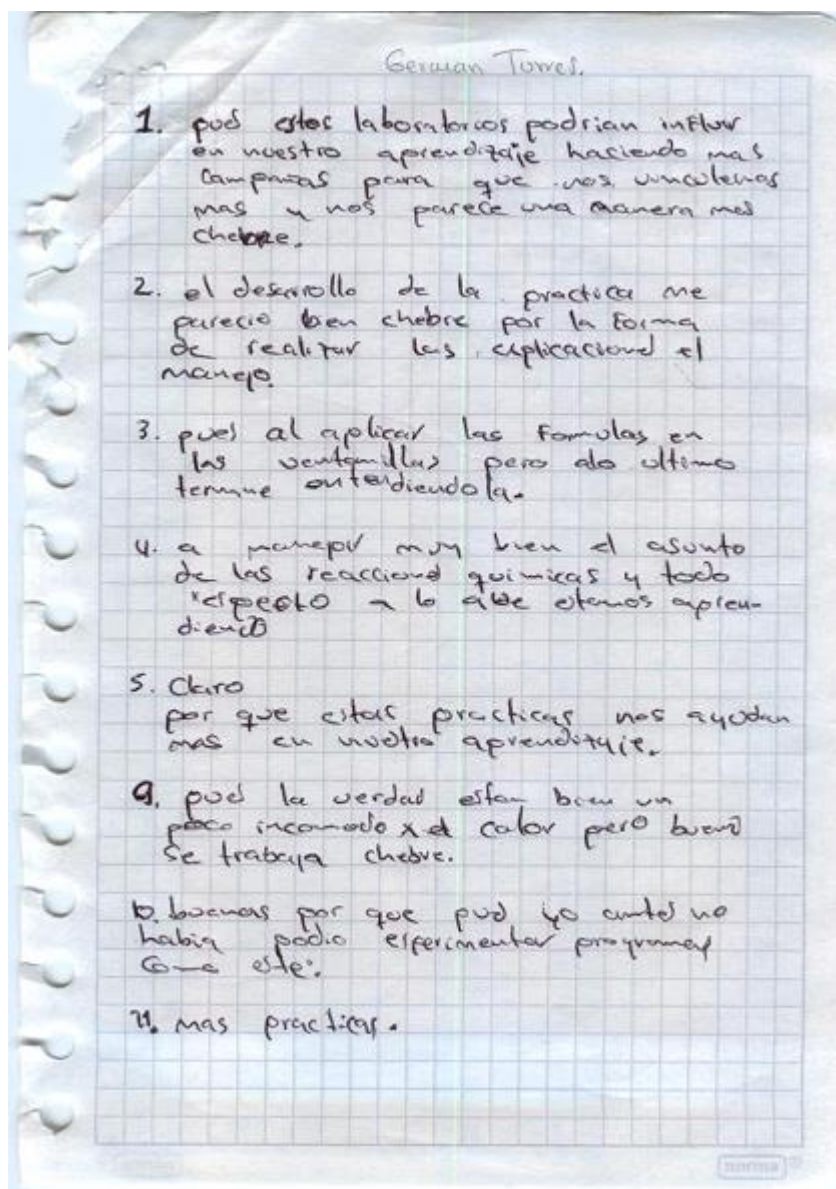 German Torres.
1. pues estos laboratorios podrian influir
en nuestro aprendizaje haciendo mas
campañas para que nos vinculemos
mas y nos parece una manera mas
chebre.
2. el desarrollo de la practica me
parecio bien chebre por la forma
de realizar las explicaciones el
manejo.
3. pues al aplicar las formulas en
las ventanillas pero alo ultimo
termine entendiendola.
4. a manejar muy bien el asunto
de las reacciones quimicas y todo
respecto a lo que estamos apren-
diendo
5. Claro
por que estas practicas nos ayudan
mas en nuestro aprendizaje.
9. pues la verdad estan bien un
poco incomodo x el calor pero bueno
se trabaja chebre.
10. buenas por que pues yo antes no
habia podio esperimentar programas
como este.
11. mas practicas.
norma